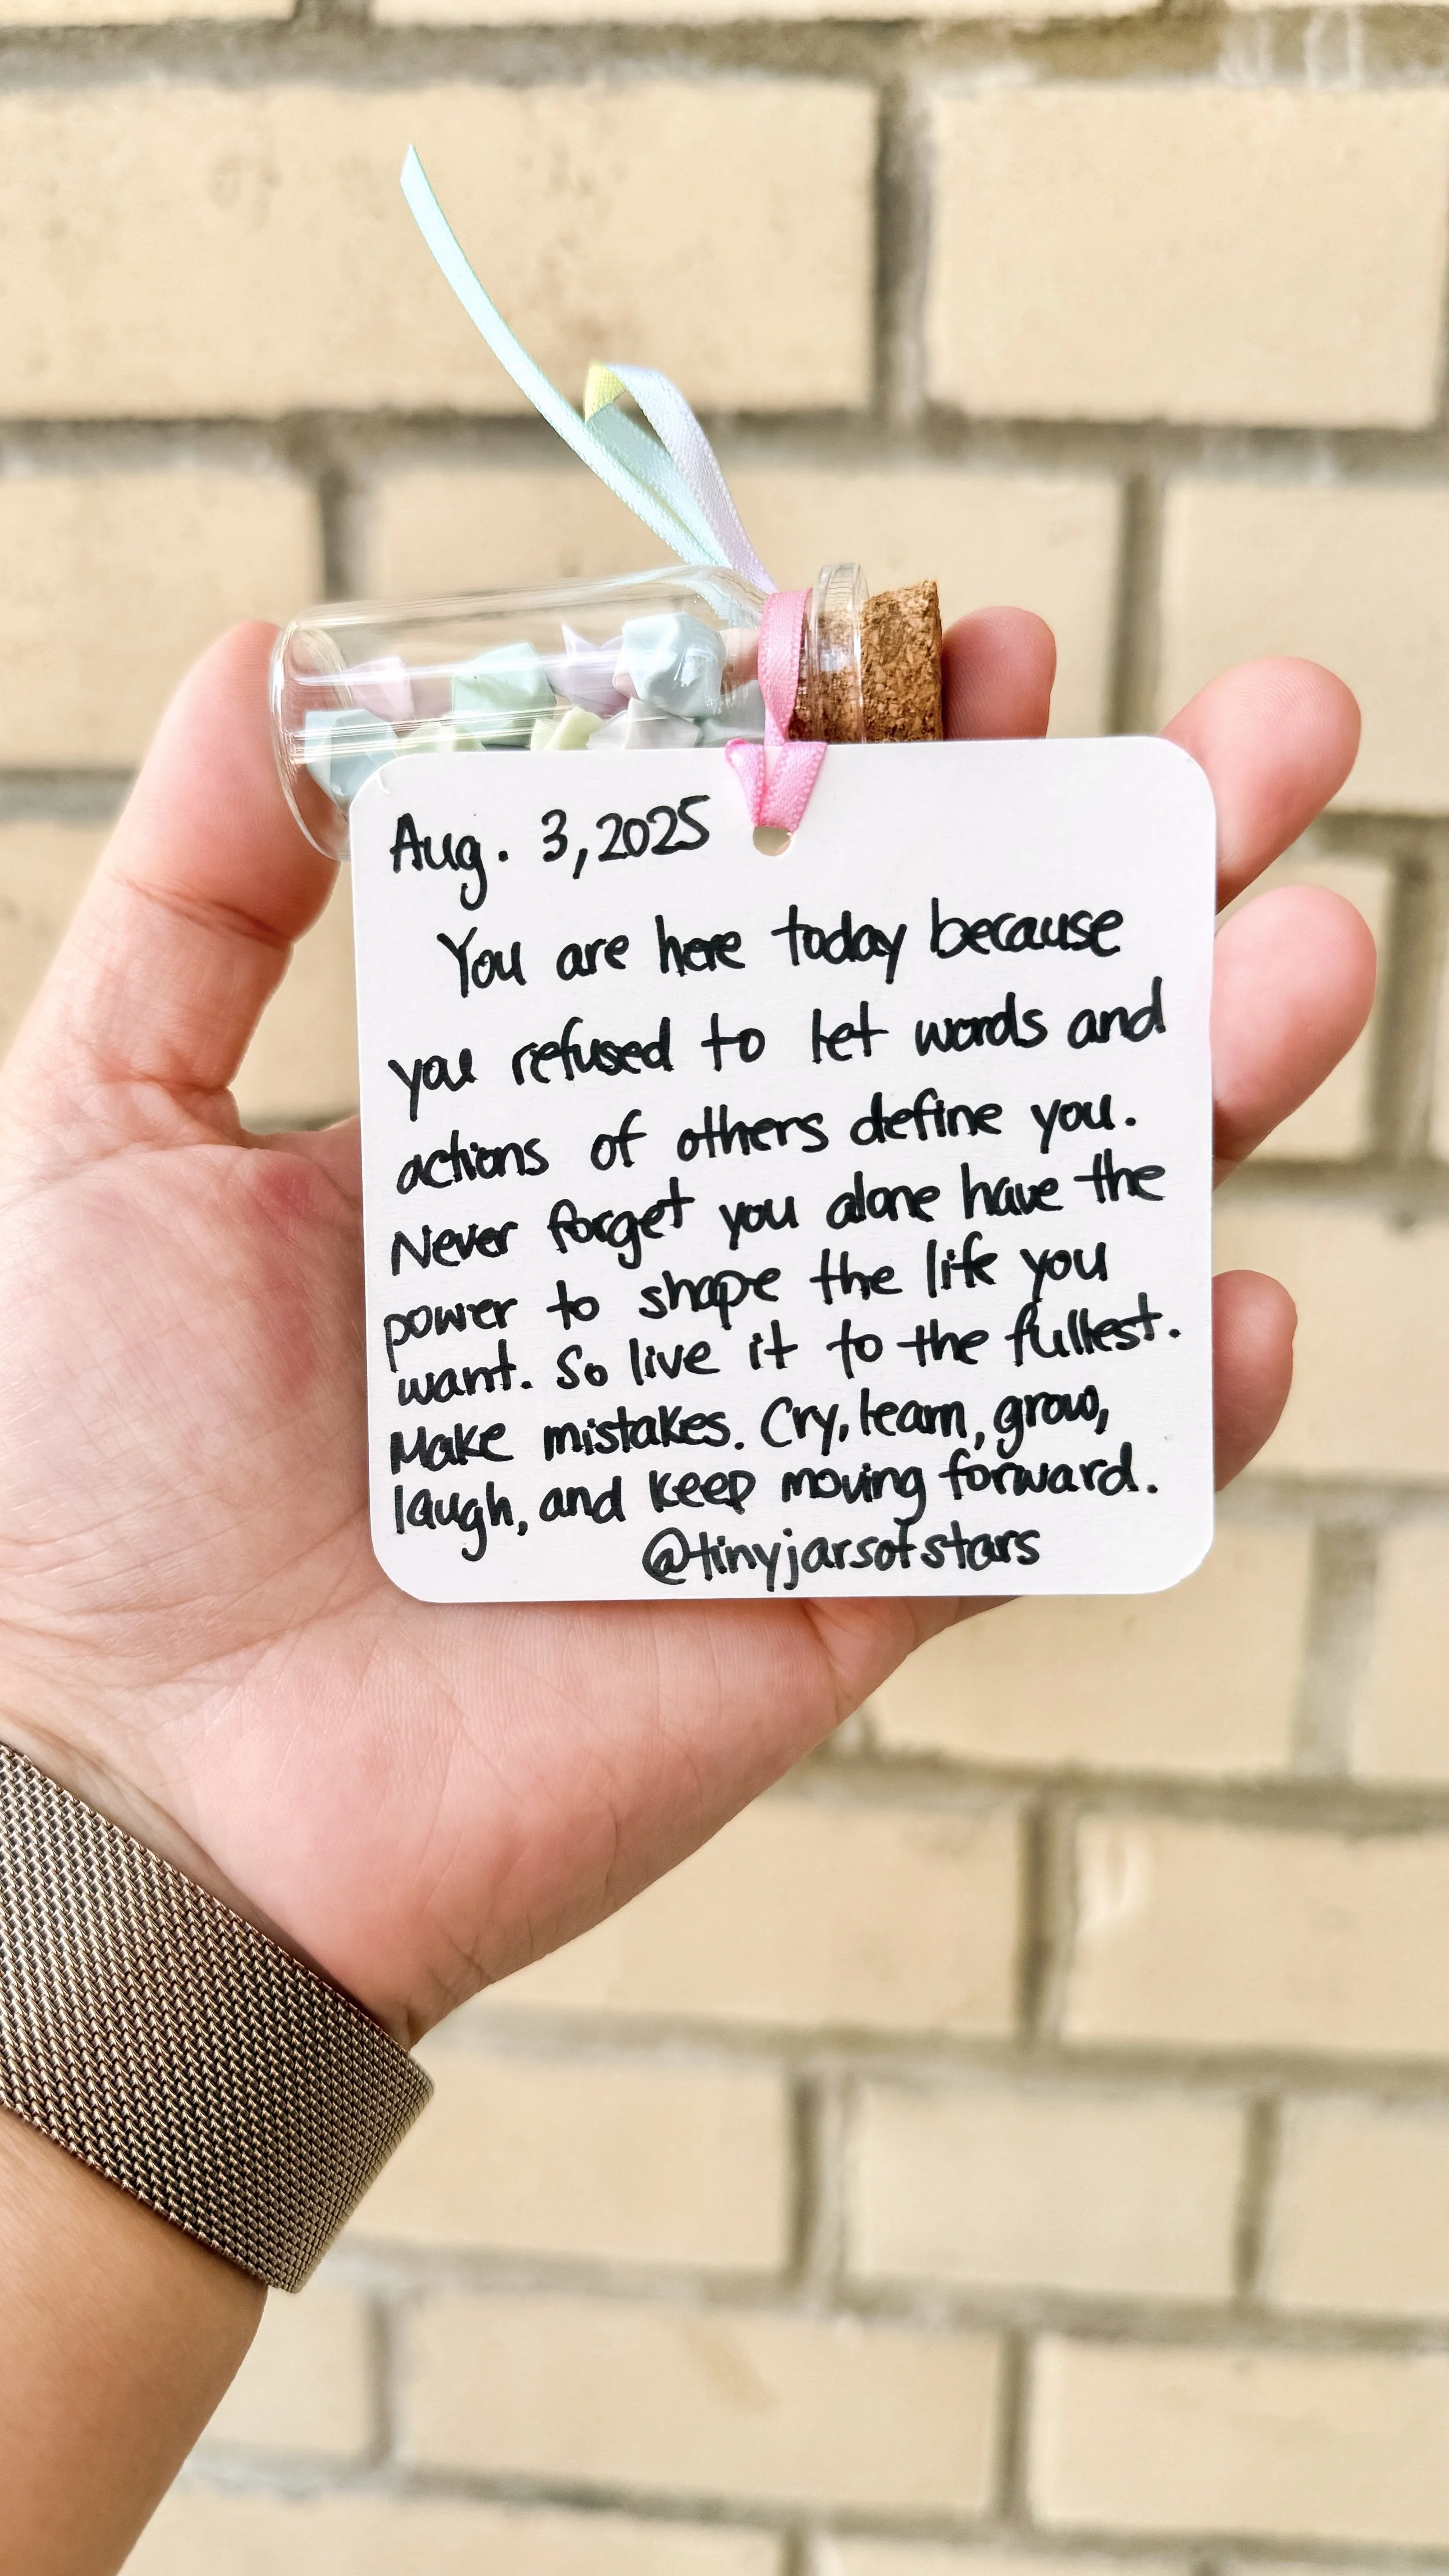 Aug. 3, 2025
You are here today because
you refused to let words and
actions of others define you.
Never forget you alone have the
power to shape the life you
want. So live it to the fullest.
Make mistakes. Cry, learn, grow,
laugh, and keep moving forward.
@tinyjarsofstars